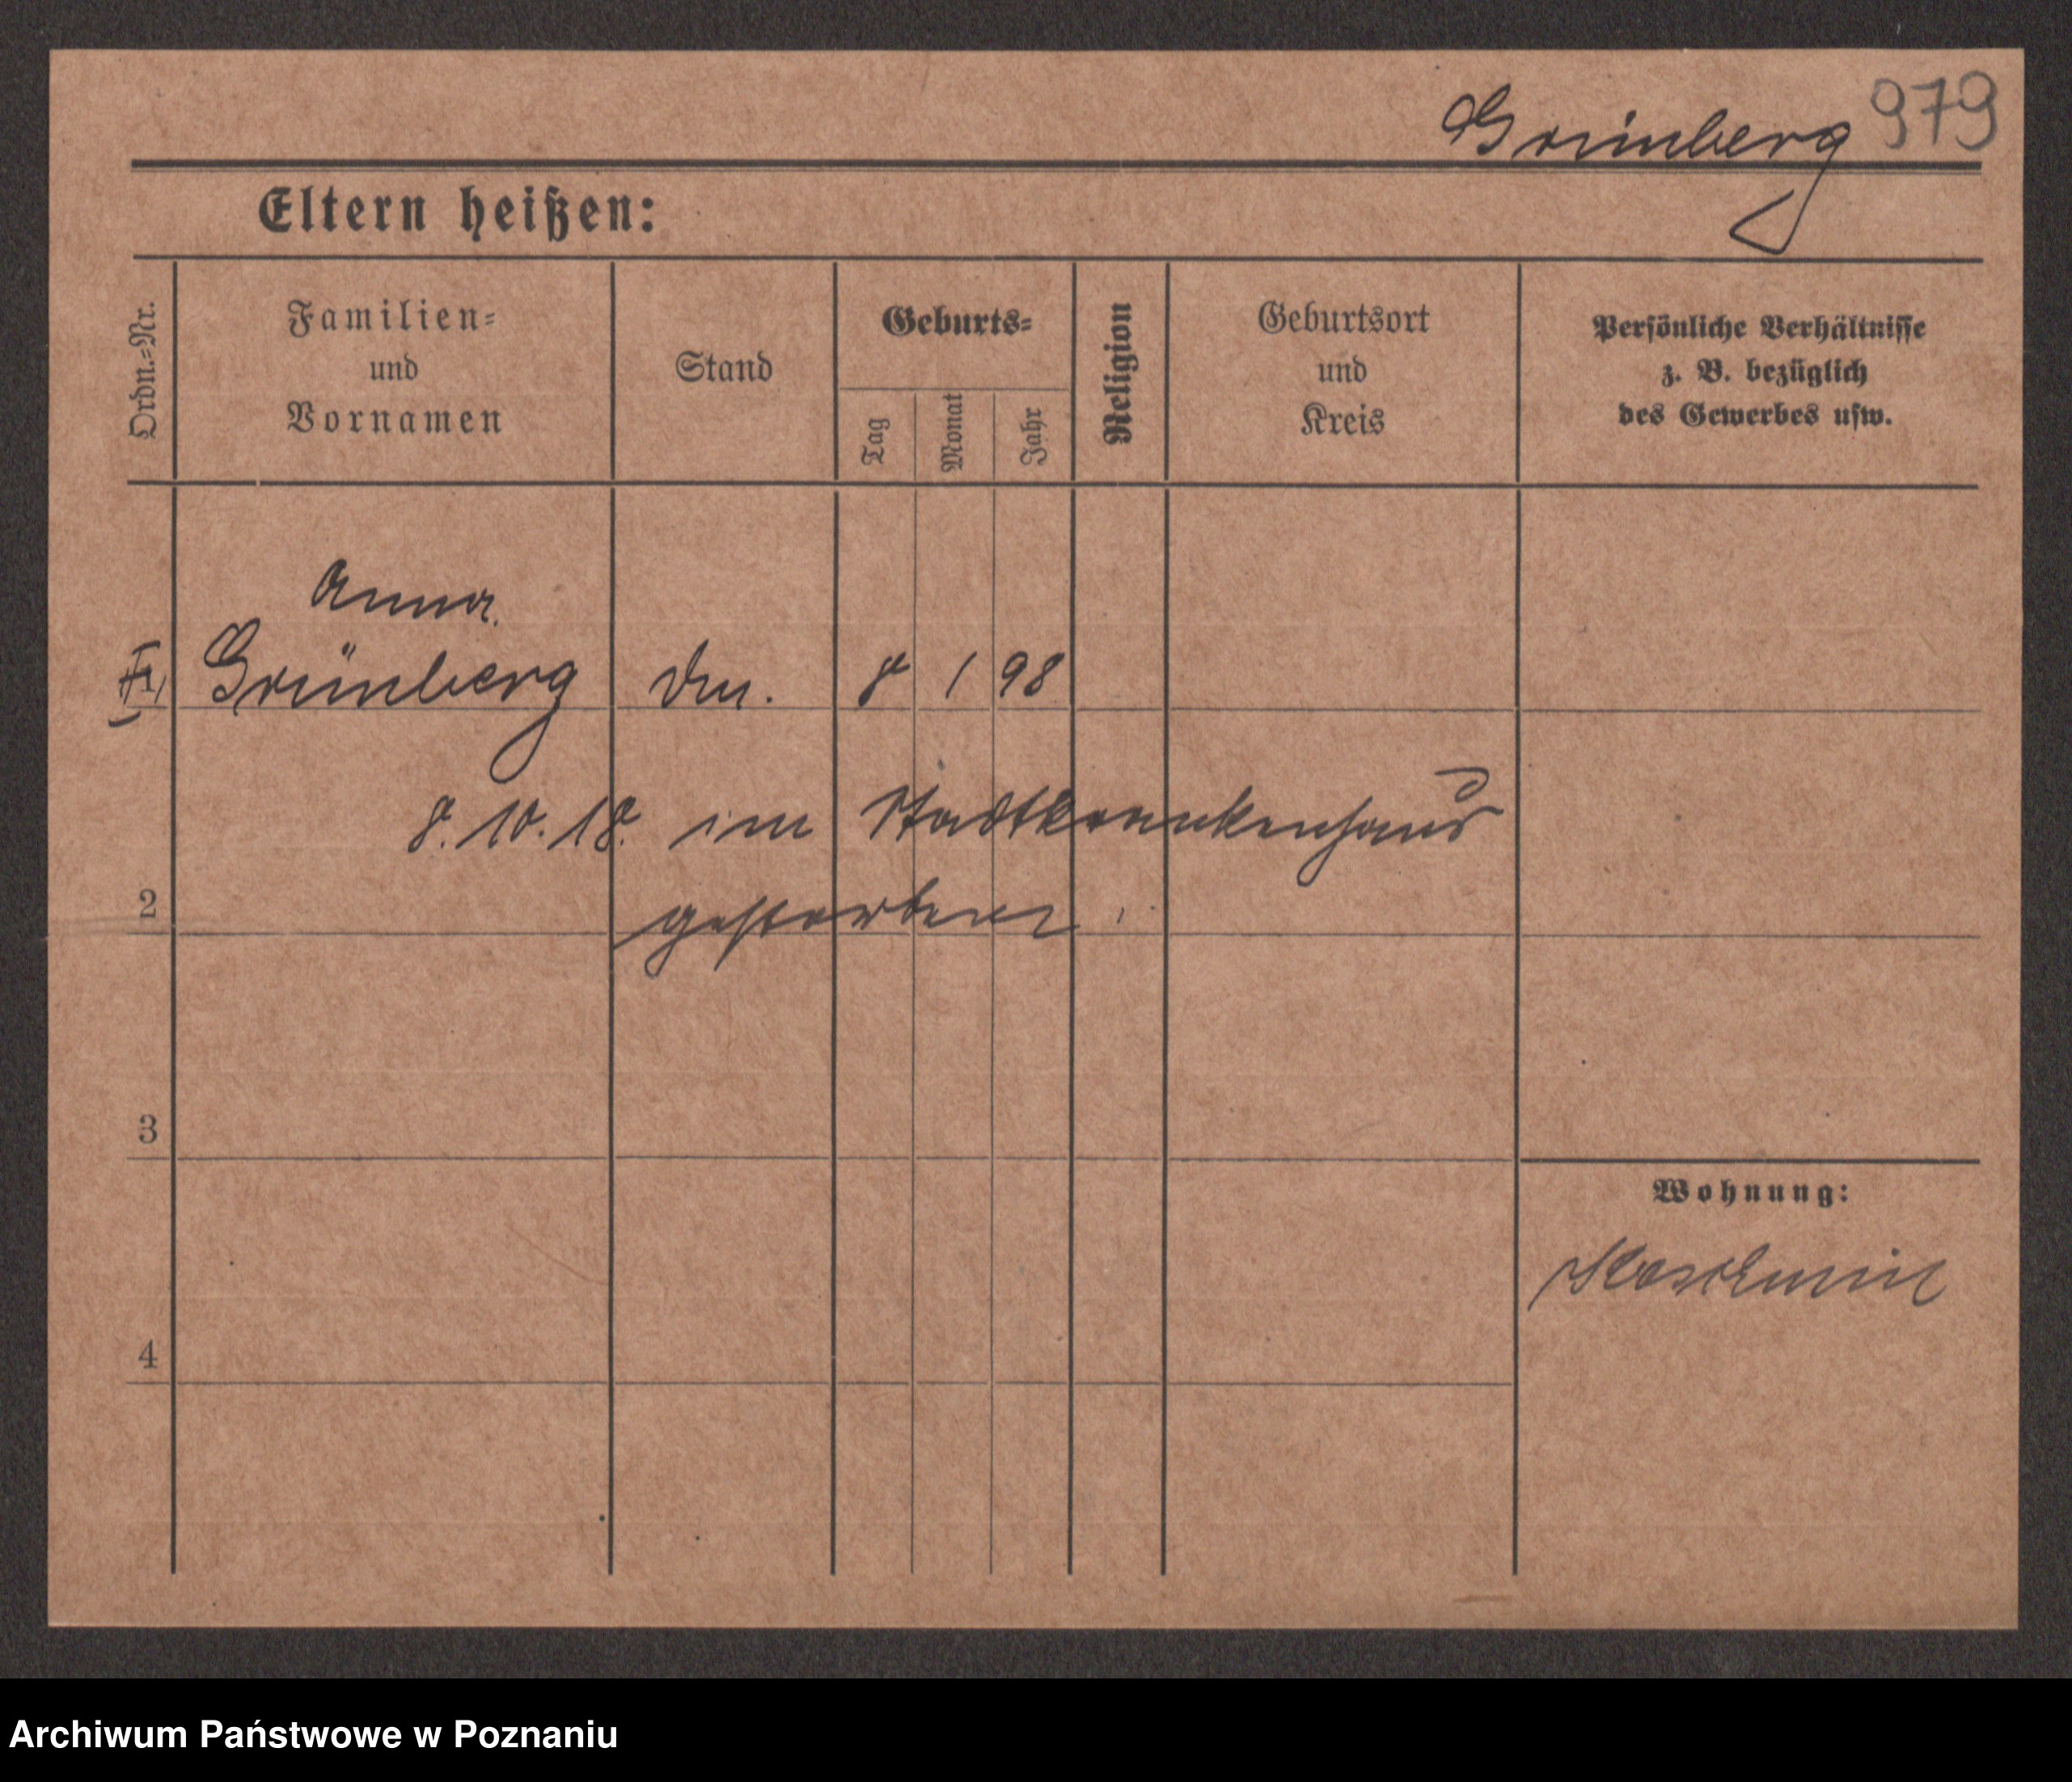 Grünberg 979
Eltern heißen:
Ordn.-Nr.
Familien-
und
Vornamen
Stand
Geburts-
Tag
Monat
Jahr
Religion
Geburtsort
und
Kreis
Persönliche Verhältnisse
z. B. bezüglich
des Gewerbes usw.
Anna
Grünberg 8 1 98
8.10.18. im Stadtkrankenhaus
2
gestorben.
3
Wohnung:
Koschmin
4
Archiwum Państwowe w Poznaniu